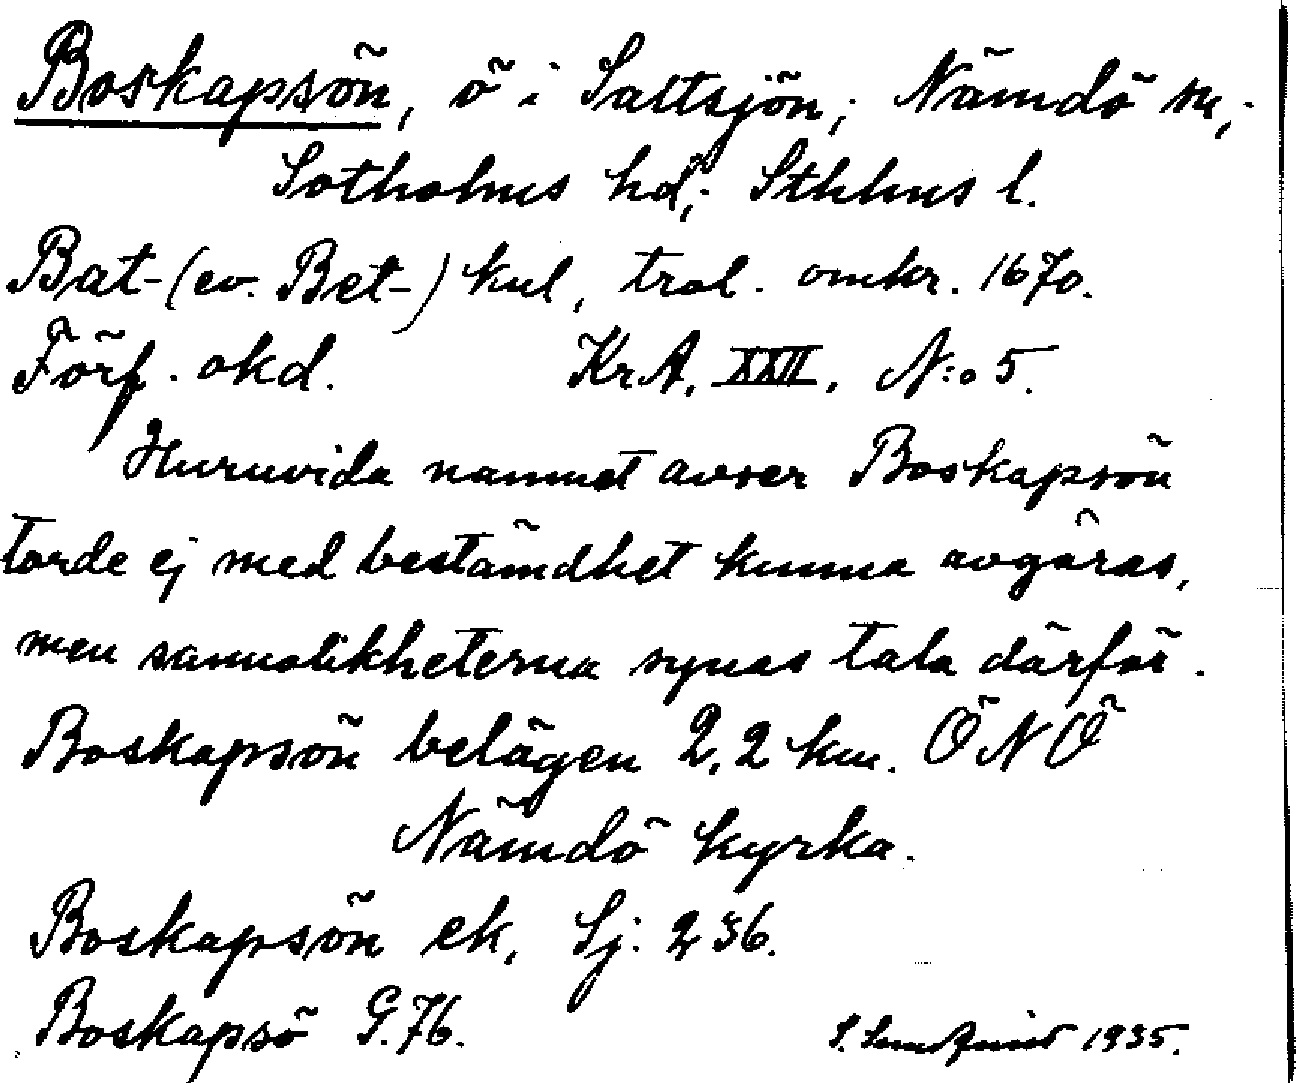 Boskapsön, ö i Saltsjön; Nämdö sn,;
Sotholms hd,; Sthlms l.
Bat-(ev. Bet-) kul, trol. omkr. 1670.
Förf. okd. KrA. XXII. N:o 5.
Huruvida namnet avser Boskapsön
torde ej med bestämdhet kunna avgöras,
men sannolikheterna synas tala därför.
Boskapsön belägen 2,2 km. ÖNÖ
Nämdö kyrka.
Boskapsön ek. Sj: 236.
Boskapsö G.76.
S. 1935.